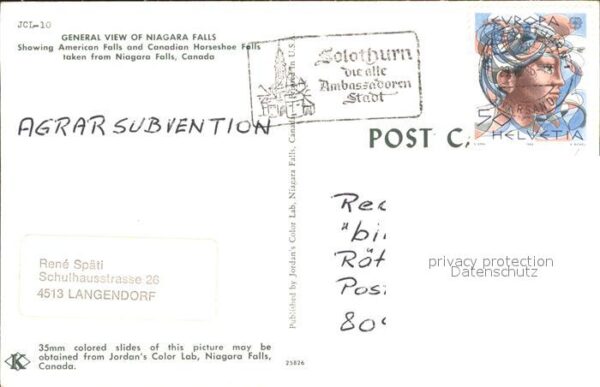 JCL-10
GENERAL VIEW OF NIAGARA FALLS
Showing American Falls and Canadian Horseshoe Falls
taken from Niagara Falls, Canada
Solothurn
die alte
Ambassadoren
Stadt
EUROPA
50
HELVETIA
AGRARSUBVENTION
POST CA
Published by Jordan's Color Lab, Niagara Falls, Canada Printed in U.S.
René Späti
Schulhausstrasse 26
4513 LANGENDORF
Re
"bi
Röt
Pos
809
privacy protection
Datenschutz
K
35mm colored slides of this picture may be
obtained from Jordan's Color Lab, Niagara Falls,
Canada.
25826